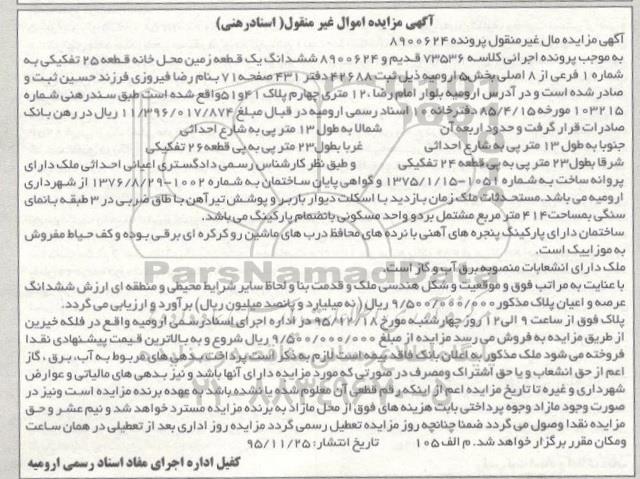 آگهی مزایده اموال غیر منقول( اسنادرهنی)
آگهی مزایده مال غیر منقول پرونده ۸۹۰۰۶۲۴
به موجب پرونده اجرائی کلاسه ۷۳۵۳۶ قدیم و ۸۹۰۰۶۲۴ ششدانگ یک قطعه زمین محل خانه قطعه ۲۵ تفکیکی به
شماره ۱ فرعی از ۸ اصلی بخش ۵ ارومیه ذیل ثبت ۴۲۶۸۸ دفتر ۴۳۱ صفحه ۷۱ بنام رضا فیروزی فرزند حسین ثبت و
صادر شده است و در آدرس ارومیه بلوار امام رضا ۱۲۰ متری چهارم پلاک ۴۱و۵۱ واقع شده است طبق سندرهنی شماره
۱۰۳۲۱۵ مورخه ۸۵/۴/۱۵ دفترخانه ۱۰ اسناد رسمی ارومیه در قبال مبلغ ۱۱/۳۹۶/۰۱۷/۸۷۴ ریال در رهن بانک
صادرات قرار گرفت و حدود اربعه آن شمالا به طول ۱۳ متر پی به شارع احداثی
جنوبا به طول ۱۳ متر پی به شارع احداثی غربا بطول ۲۳ متر پی به پی قطعه ۲۶ تفکیکی
شرقا بطول ۲۳ متر پی به پی قطعه ۲۴ تفکیکی و طبق نظر کارشناس رسمی دادگستری اعیانی احداثی ملک دارای
پروانه ساخت به شماره ۱۰۵۲-۱۳۷۵/۱/۱۵ و گواهی پایان ساختمان به شماره ۱۰۰۲-۱۳۷۶/۸/۲۹ از شهرداری
ارومیه می باشد. مستحدثات ملک زمان بازدید با اسکلت دیوار باربر و پوشش تیرآهن با طاق ضربی در ۳ طبقه با نمای
سنگی بمساحت ۴۱۴ متر مربع مشتمل بر دو واحد مسکونی بانضمام پارکینگ می باشد.
ساختمان دارای پارکینگ پنجره های آهنی با نرده های محافظ درب های ماشین رو کرکره ای برقی بوده و کف حیاط مفروش
به موزاییک است.
ملک دارای انشعابات منصوبه برق آب و گاز است.
با عنایت به مراتب فوق و موقعیت و شکل هندسی ملک و قدمت بنا و لحاظ سایر شرایط محیطی و منطقه ای ارزش ششدانگ
عرصه و اعیان پلاک مذکور ۹/۵۰۰/۰۰۰/۰۰۰ ریال ( نه میلیارد و پانصد میلیون ریال) برآورد و ارزیابی می گردد.
پلاک فوق از ساعت ۹ الی ۱۲ روز چهارشنبه مورخ ۹۵/۱۲/۱۸ در اداره اجرای اسنادرسمی ارومیه واقع در فلکه خیرین
از طریق مزایده به فروش می رسد مزایده از مبلغ ۹/۵۰۰/۰۰۰/۰۰۰ ریال شروع و به بالاترین قیمت پیشنهادی نقدا
فروخته می شود ملک مذکور به اعلان بانک فاقد بیمه است لازم به ذکر است پرداخت بدهی های مربوط به آب، برق ، گاز
اعم از حق انشعاب و یا حق اشتراک و مصرف در صورتی که مورد مزایده دارای آنها باشد و نیز بدهی های مالیاتی و عوارض
شهرداری و غیره تا تاریخ مزایده اعم از اینکه رقم قطعی آن معلوم شده یا نشده باشد به عهده برنده مزایده است ونیز در
صورت وجود مازاد وجوه پرداختی بابت هزینه های فوق از محل مازاد به برنده مزایده مسترد خواهد شد و نیم عشر و حق
مزایده نقدا وصول می گردد ضمنا چنانچه روز مزایده تعطیل رسمی گردد مزایده روز اداری بعد از تعطیلی در همان ساعت
ومکان مقرر برگزار خواهد شد. م الف ۱۰۵ تاریخ انتشار: ۹۵/۱۱/۲۵
کفیل اداره اجرای مفاد اسناد رسمی ارومیه
ParsNamadData